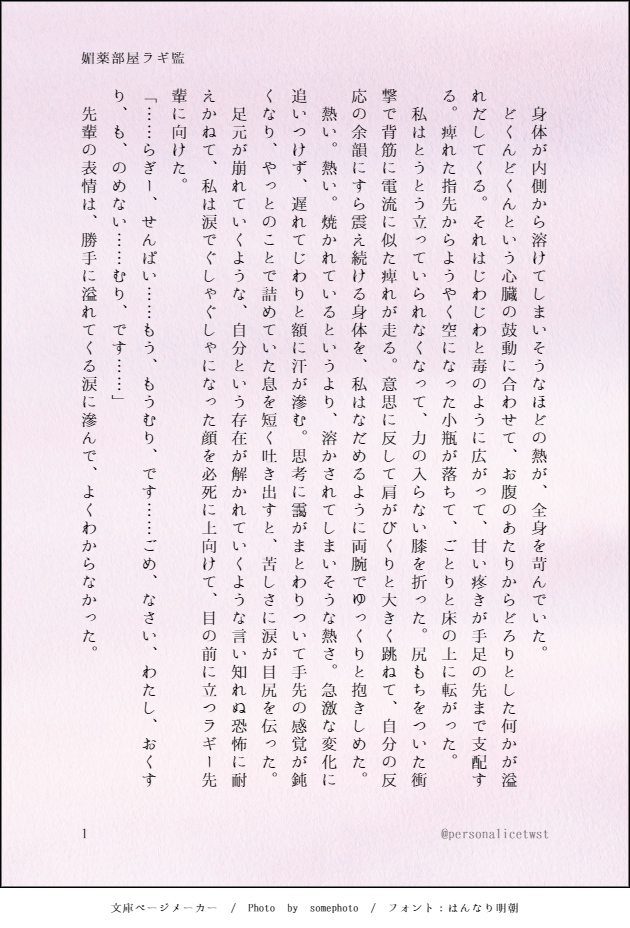 媚薬部屋ラギ監
身体が内側から溶けてしまいそうなほどの熱が、全身を苛んでいた。
どくんどくんという心臓の鼓動に合わせて、お腹のあたりからどろりとした何かが溢
れだしてくる。それはじわじわと毒のように広がって、甘い疼きが手足の先まで支配す
る。痺れた指先からようやく空になった小瓶が落ちて、ごとりと床の上に転がった。
私はとうとう立っていられなくなって、力の入らない膝を折った。尻もちをついた衝
撃で背筋に電流に似た痺れが走る。意思に反して肩がびくりと大きく跳ねて、自分の反
応の余韻にすら震え続ける身体を、私はなだめるように両腕でゆっくりと抱きしめた。
熱い。熱い。焼かれているというより、溶かされてしまいそうな熱さ。急激な変化に
追いつけず、遅れてじわりと額に汗が滲む。思考に靄がまとわりついて手先の感覚が鈍
くなり、やっとのことで詰めていた息を短く吐き出すと、苦しさに涙が目尻を伝った。
足元が崩れていくような、自分という存在が解かれていくような言い知れぬ恐怖に耐
えかねて、私は涙でぐしゃぐしゃになった顔を必死に上向けて、目の前に立つラギー先
輩に向けた。
「……らぎー、せんぱい……もう、もうむり、です……ごめ、なさい、わたし、おくす
り、も、のめない……むり、です……」
先輩の表情は、勝手に溢れてくる涙に滲んで、よくわからなかった。
1
@personalicetwst
文庫ページメーカー / Photo by somephoto / フォント：はんなり明朝